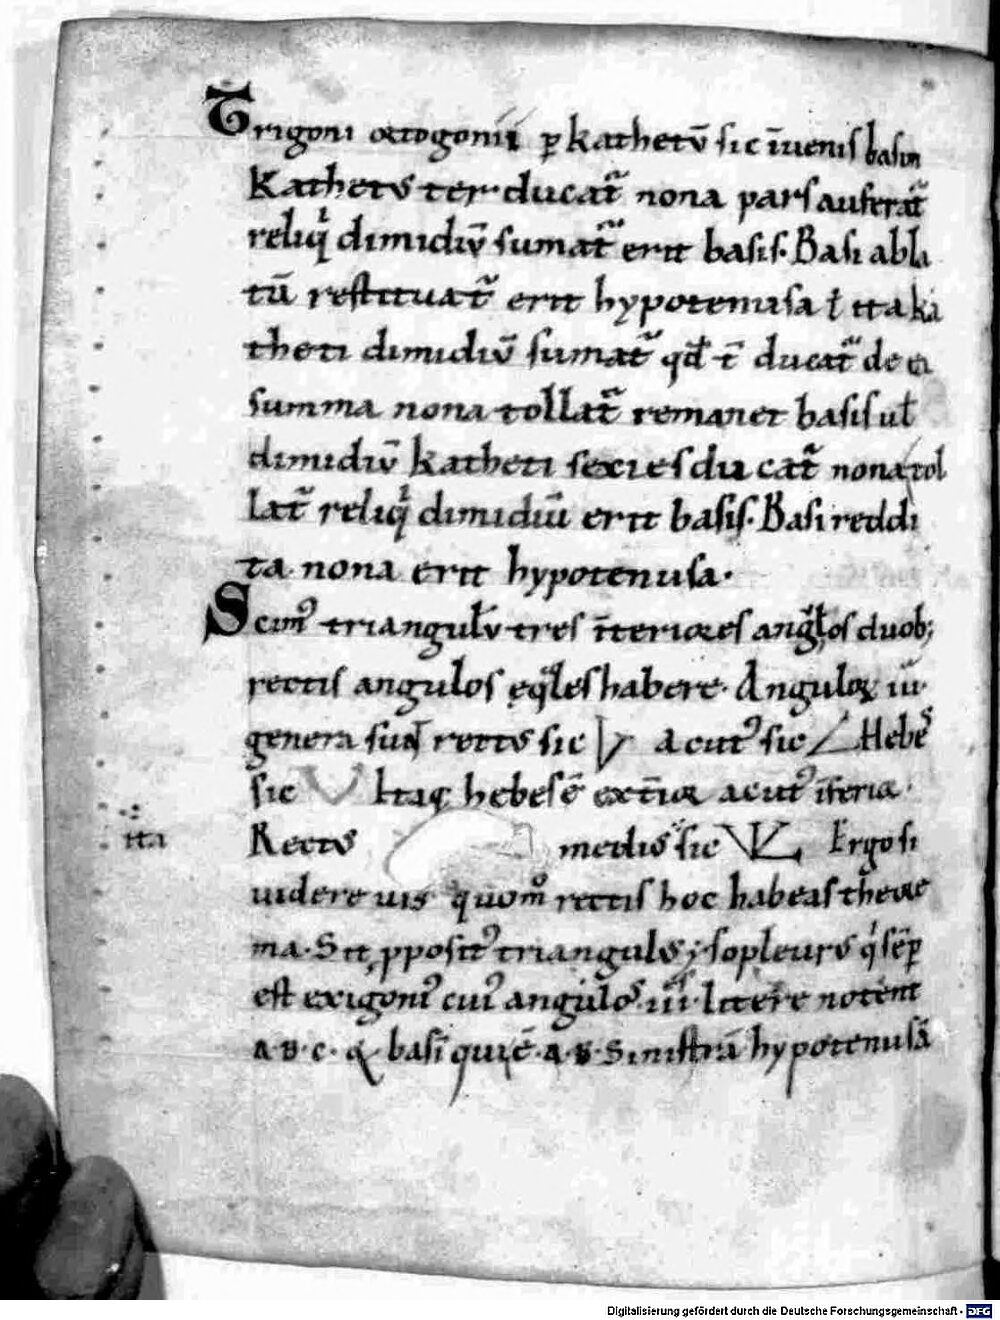 Trigoni octogonii ꝑ kathetū sic īuenis basim
Kathetꝰ ter ducat᷑ nona pars auferat᷑
reliq̇ dimidiū sumat᷑ erit basis. Basi abla
tū restituat᷑ erit hypotenusa ł ita ka
theti dimidiū sumat᷑ qđ t̄ ducat᷑ de ea
summa nona tollat᷑ remanet basis uł
dimidiū katheti sexies ducat᷑ nona tol
lat᷑ reliq̇ dimidiū erit basis. Basi reddi
ta nona erit hypotenusa.
Scimꝰ triangulū tres īteriores angłos duob;
rectis angulos eq̄les habere. Anguloꝝ iii.
genera sunt rectꝰ sic acutꝰ sic Hebeſ
sic Itaq; hebes ē exteriꝰ acutꝰ īferiꝰ.
ita Rectꝰ mediꝰ sic Ergo si
uidere uis quom̊ rectis hoc habeas theore
ma. Sit ꝓpositꝰ triangulꝰ isopleurꝰ q̇ sēꝑ
est exigoniꝰ cuiꝰ angulos iii. littere notent
a. b. c. & basi quiē. a. b. Sinistrā hypotenusā
Digitalisierung gefördert durch die Deutsche Forschungsgemeinschaft - DFG